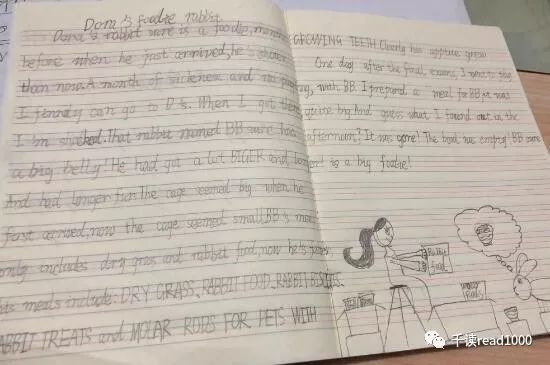 Dora's foodie rabbit
Dora's rabbit sure is a foodie, months
before when he just arrived, he's shorter
than now. A month of sickness and no
I finnaly can go to D's. When I got there
I'm shocked. That rabbit named BB sure had
a big belly! He had got a lot BIGER and
And had longer fur. The cage seemed big when he
first arrived, now the cage seemed small. BB's meal
only includes dry grass and rabbit food, now he's
his meals include: DRY GRASS, RABBIT FOOD, RABBIT BISCUITS,
RABBIT TREATS and MOLAR RODS FOR PETS WITH
GROWING TEETH. Clearly his appetite grew
One day after the final exams, I went to play
with BB. I prepared a meal for BB, it was
quite big. And guess what I found out in the
afternoon? It was gone! The bowl was empty! BB sure
is a big foodie!
Rabbit
food
千读read1000